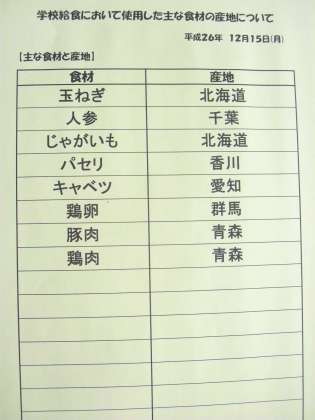 学校給食において使用した主な食材の産地について
平成26年 12月15日(月)
【主な食材と産地】
食材 産地
玉ねぎ 北海道
人参 千葉
じゃがいも 北海道
パセリ 香川
キャベツ 愛知
鶏卵 群馬
豚肉 青森
鶏肉 青森